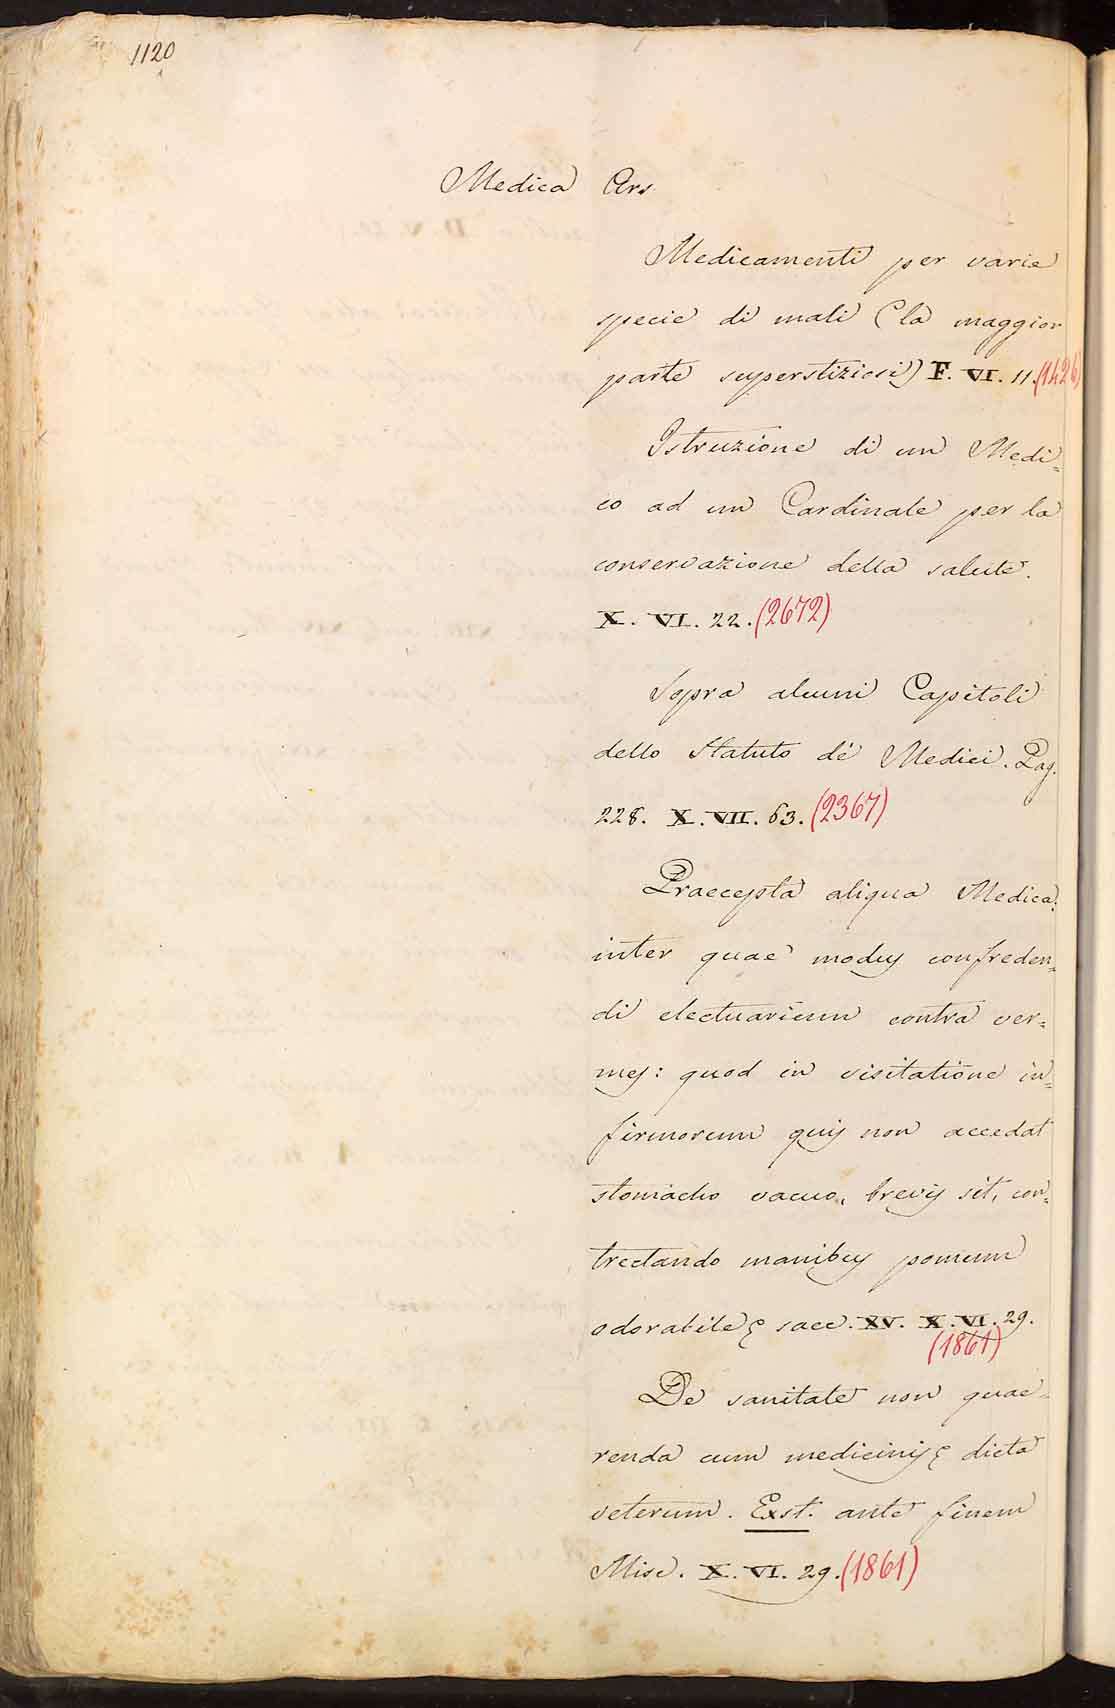 1120
Medica Ars
Medicamenti per varie
specie di mali (la maggior
parte superstiziosi) F. VI. 11. (1426)
Istruzione di un Medi=
co ad un Cardinale per la
conservazione della salute.
X. VI. 22. (2672)
Sopra alcuni Capitoli
dello Statuto de' Medici. Pag.
228. X. VII. 63. (2367)
Praecepta aliqua Medica:
inter quae modus confreden=
di electuarium contra ver=
mes: quod in visitatione in=
firmorum quis non accedat
stomacho vacuo, brevis sit, con=
trectando manibus pomum
odorabile; saec. XV. X. VI. 29.
(1861)
De sanitate non quae=
renda cum medicinis; dicta
veterum. Exst. ante finem
Misc. X. VI. 29. (1861)